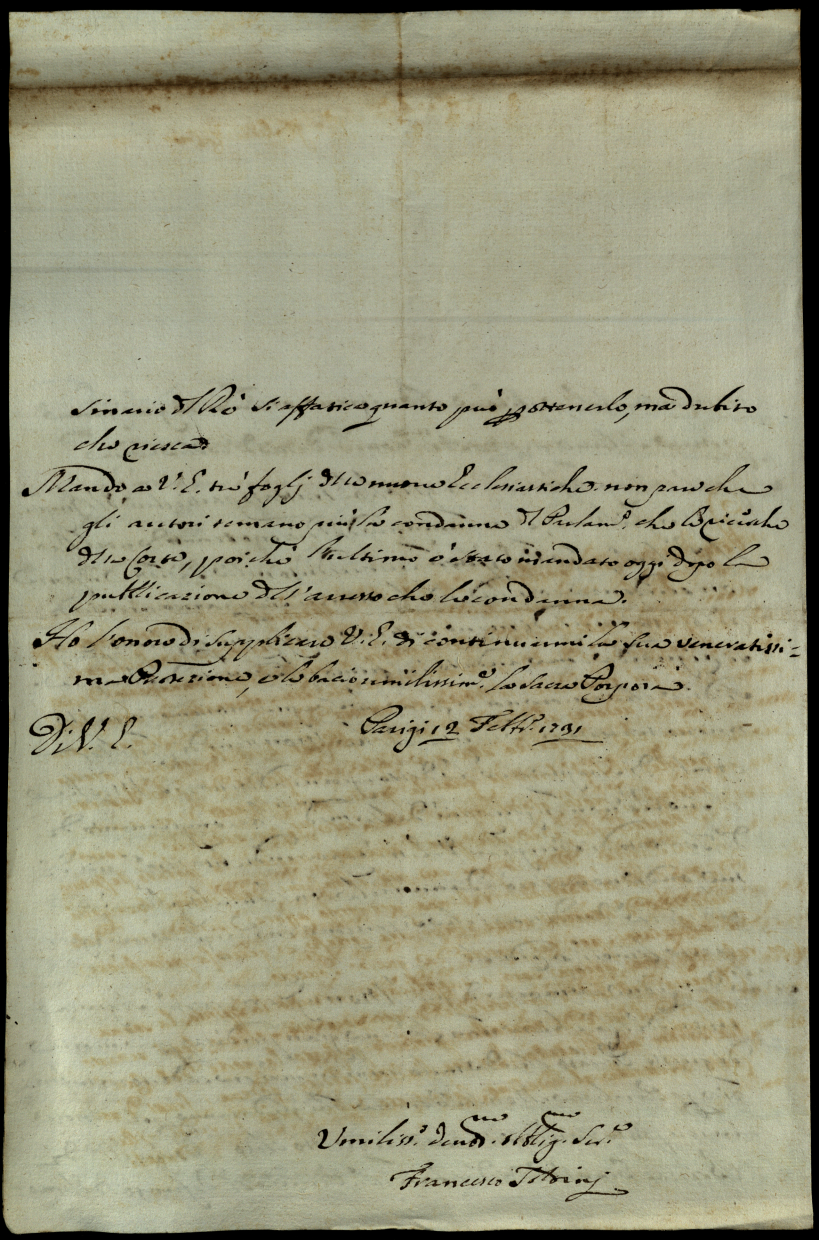 sinario del Ré si affatica quanto può p ottenerlo, ma dubito
che riesca
Mando a V. E. tré foglj delle nuove Ecclesiastiche. non pare che
gli autori temano più la condanna del Parlam.º che le ricerche
della Corte, poiche l'ultimo é stato mandato oggi dopo la
publicazione dell'arresto che le condanna.
Ho l'onore di supplicare V. E. di continuarmi la sua veneratissi=
ma Protezione, e le bacio umilissim.e la Sacra Porpora.
Di V. E. Parigi 12 Febb.º 1731
Umiliss.º devot.mo obblig.mo Ser.e
Francesco